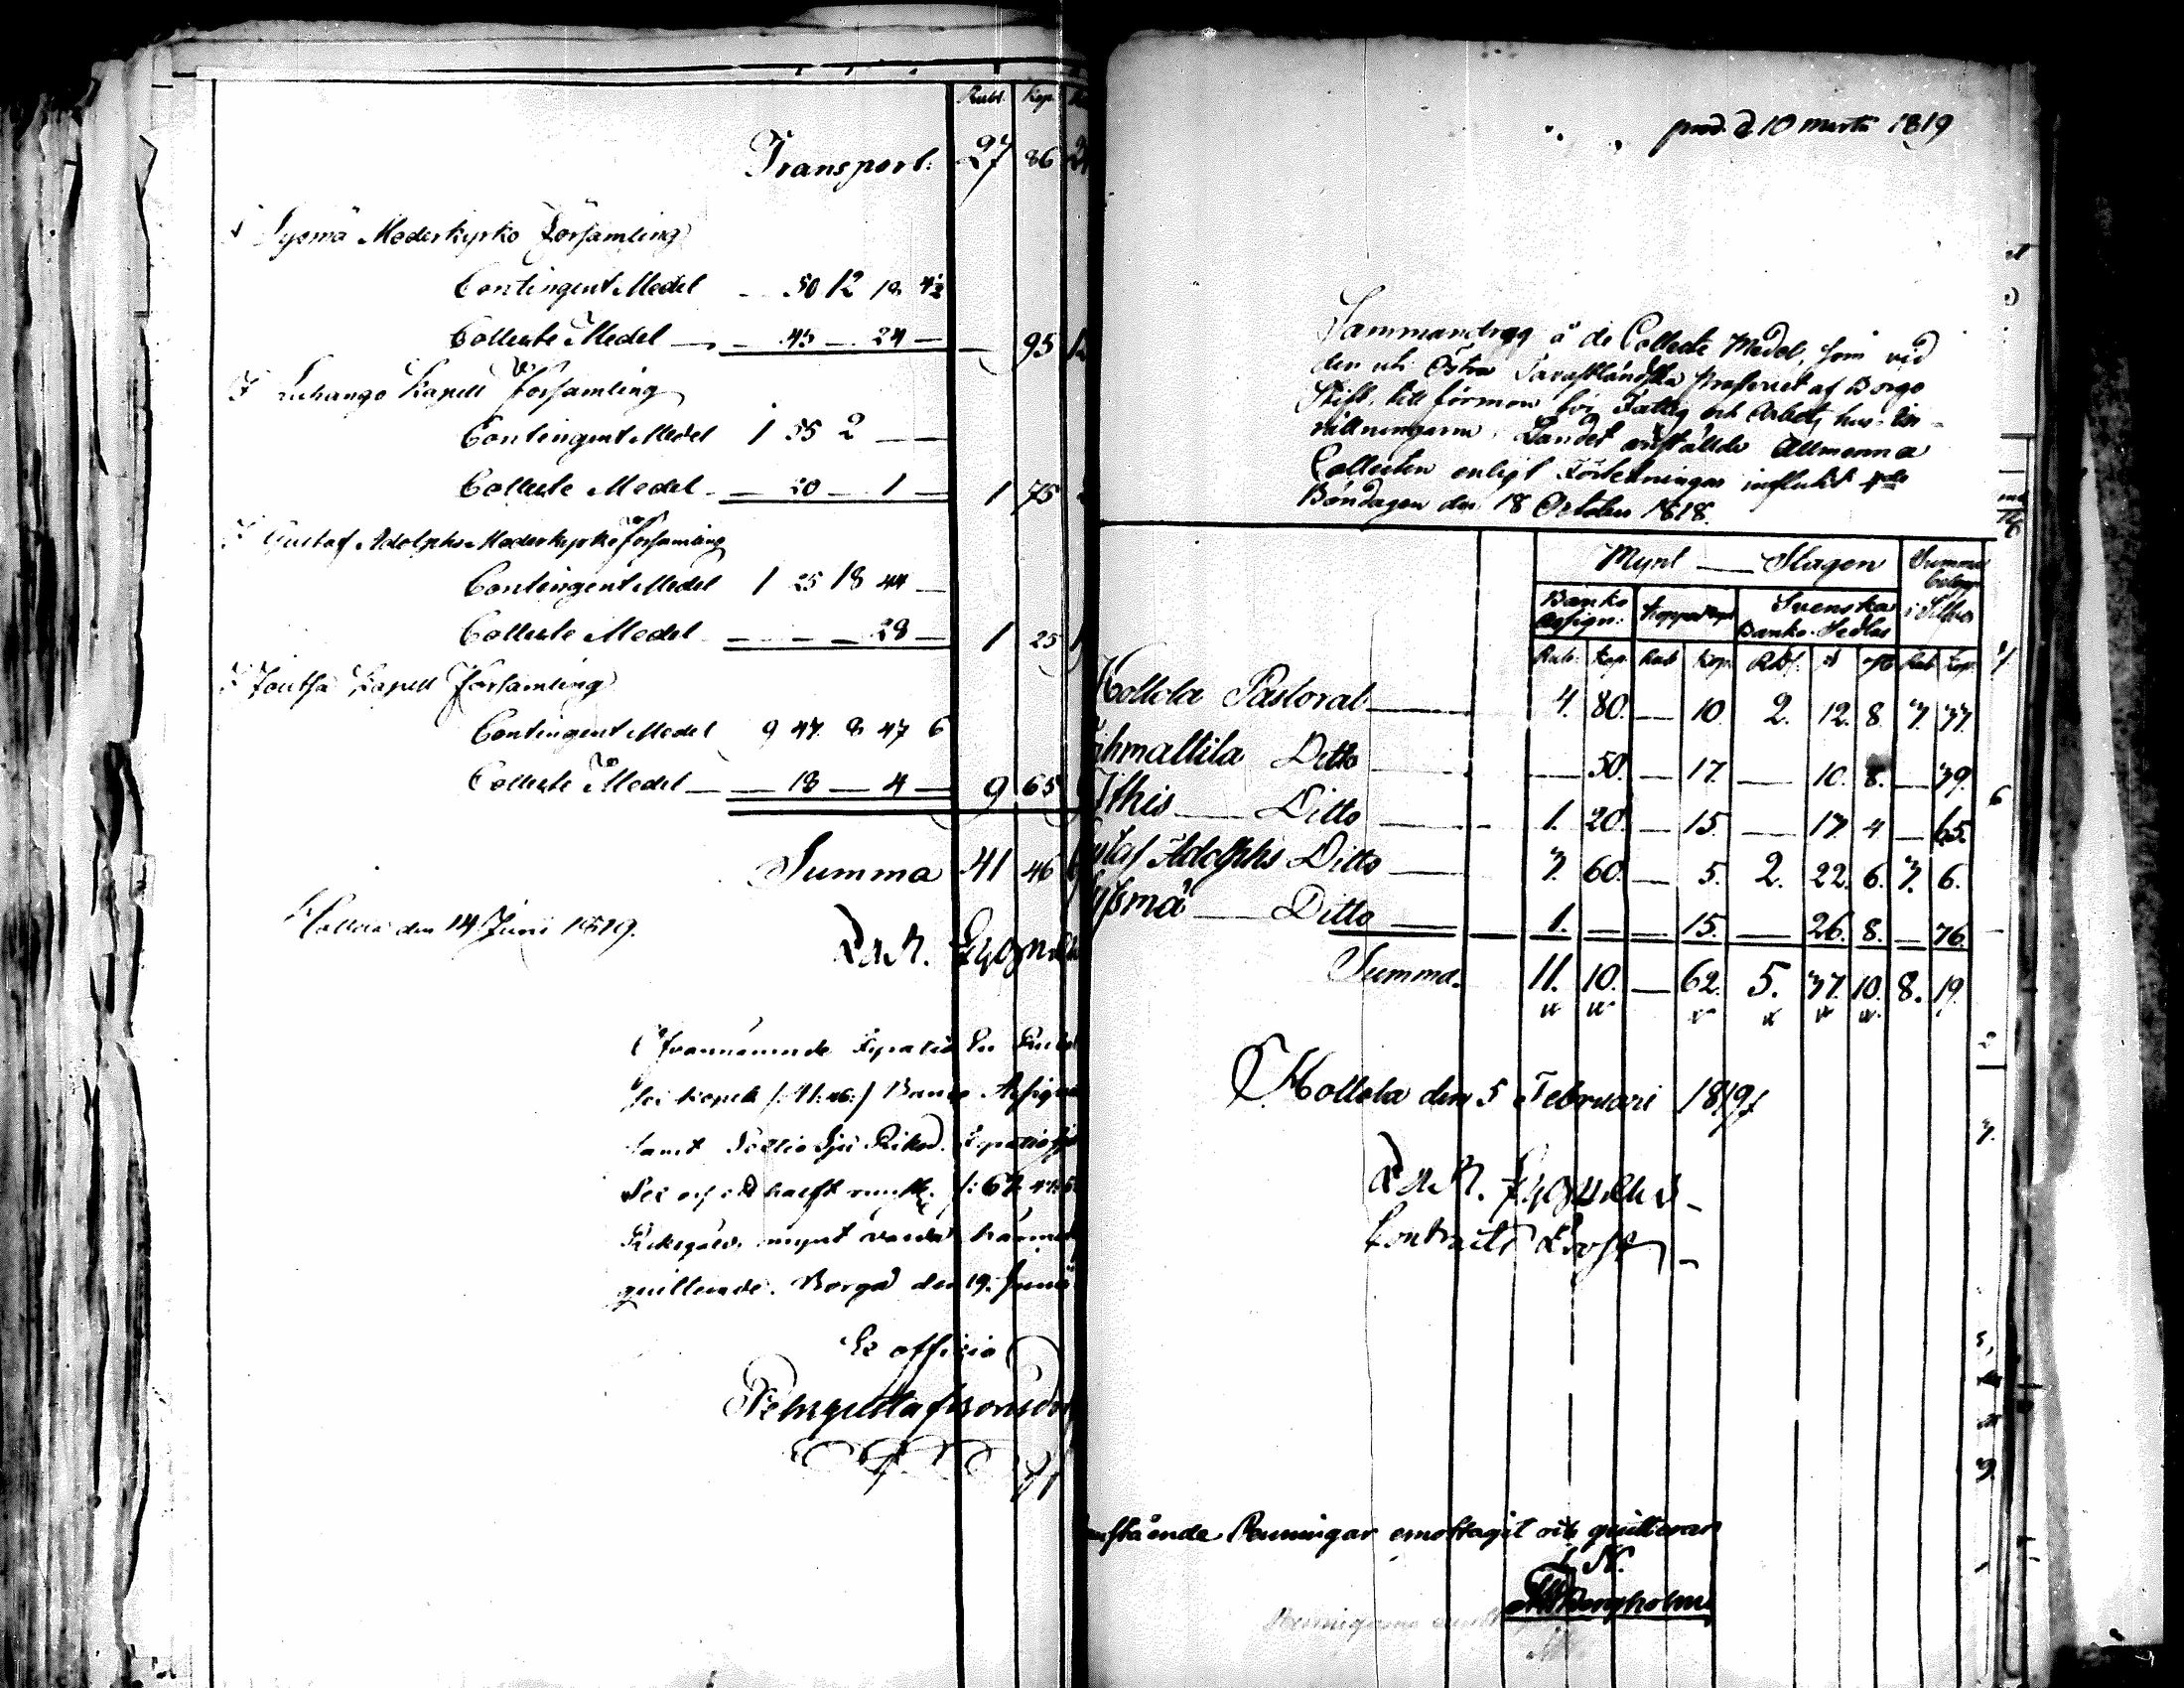 Rubl. Kop.
Transport. 27 86
I Sysmä Moderkyrko Församling
Contingent Medel - 50 12 18 4½
Collecte Medel — 45 — 24 — 95
I Luhango Kapell Församling
Contingent Medel 1 55 2 —
Collecte Medel — 20 — 1 — 1 75
I Gustaf Adolphs Moderkyrko församling
Contingent Medel 1 25 18 44 —
Collecte Medel — — — 28 — 1 25
I Joutsa Kapell Församling
Contingent Medel 9 47 8 47 6
Collecte Medel — 18 — 4 — 9 65
Summa 41 46
Hollola den 14 Junii 1819.
Ofvannämnde
sex kopek /: 41:46:/ Banco Assigna
samt Sextio Sju Riksd.
Sex och ett halft runst. /: 67 47:6
Riksgälds mynt varda härmed
quitterade. Borgå den 19. Junii
Ex officio
prod. d. 10 martii 1819
Sammandrag å de Collecte Medel, som vid
den uti Östra Tavastländska Prosteriet af Borgo
Stift, till förmon för Fattig och Arbets hus In-
rättningarne i Landet anstälde Allmänna
Collecten enligt Förtekningar influtit
Böndagen den 18 October 1818.
Mynt — Slagen Summa
Banko Assign: Koppar Svenska Banko-Sedlar i Silfver
Rub. Kop. Rub Kop. Rdr. s Rub Kop.
Hollola Pastorat — 4. 80. — 10. 2. 12. 8. 7. 77.
ihmattila Ditto — 50. — 17. — 10. 8. — 39.
Ithis — Ditto — 1. 20. — 15. — 17 4 — 65.
ustaf Adolphs Ditto — 7. 60. — 5. 2. 22. 6. 7. 6.
ysmä — Ditto — 1. — — 15. — 26. 8. — 76.
Summa. 11. 10. — 62. 5. 77. 10. 8. 19.
Hollola den 5 Februari 1819.
Contracts Prost
anstående Penningar emottagit och quitteras